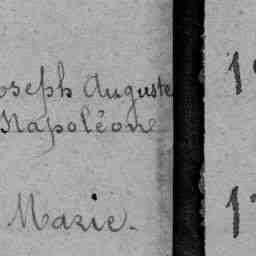 Joseph Auguste
Napoléone
Marie.